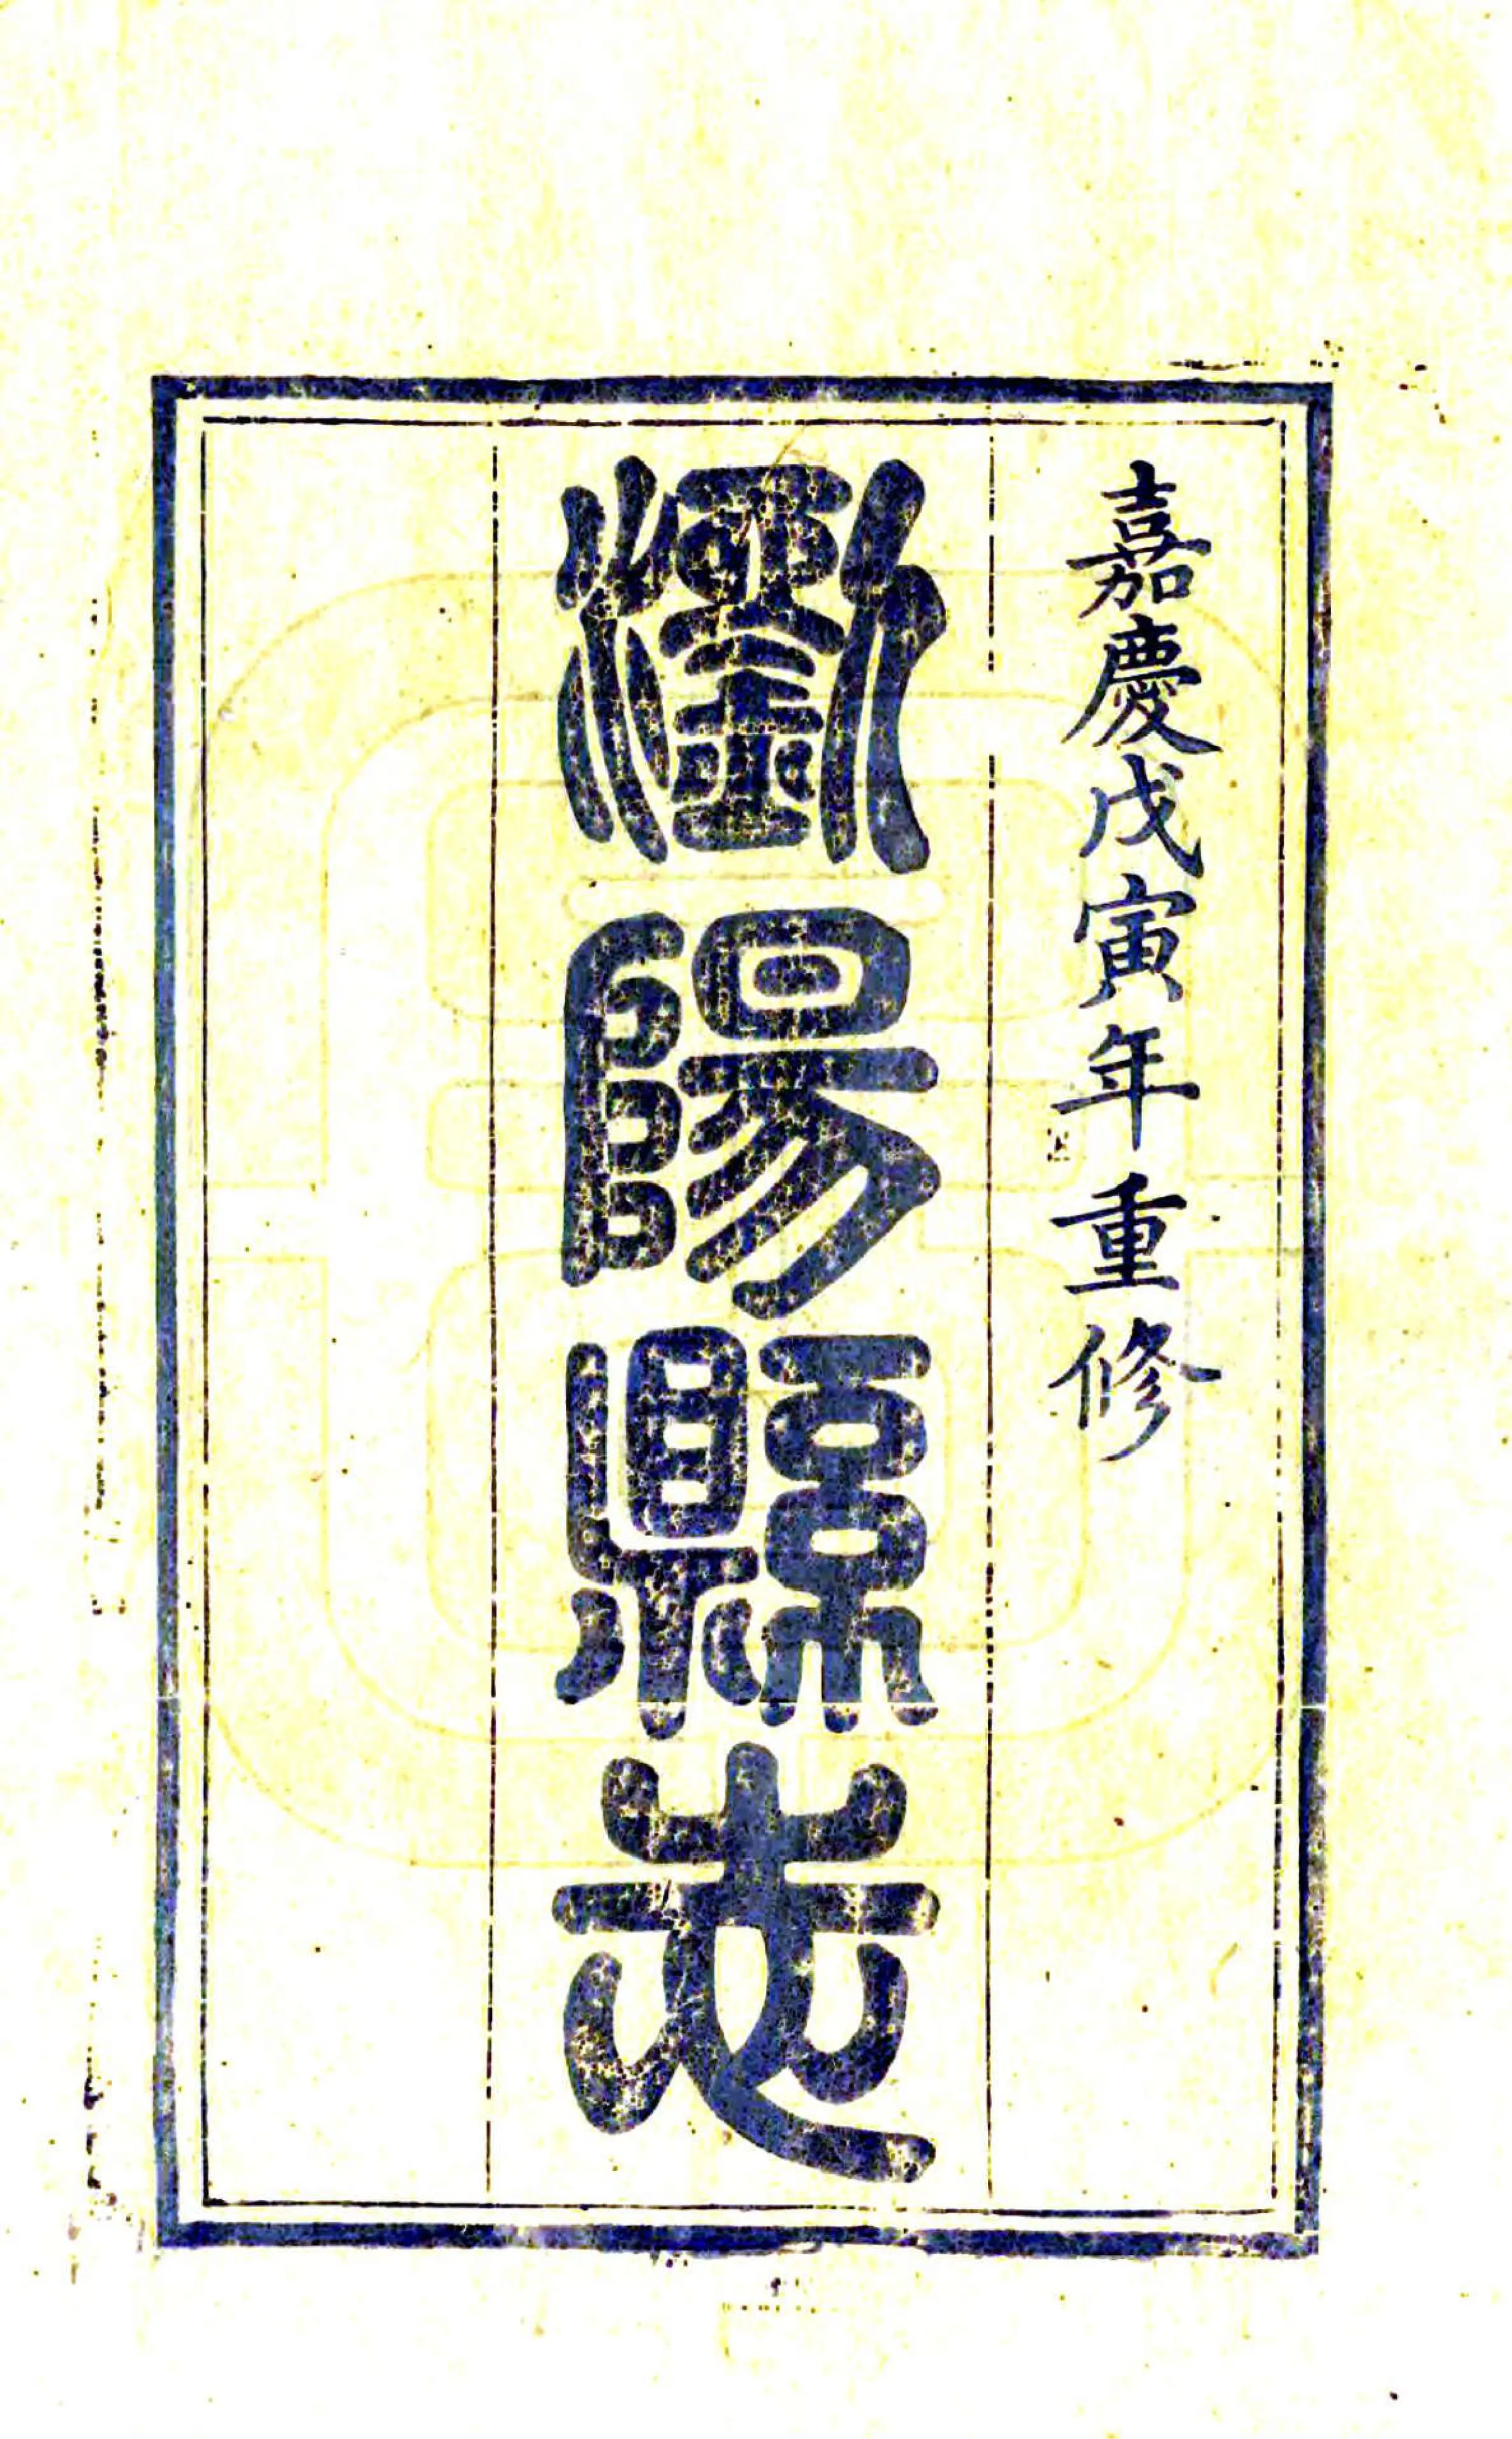 嘉慶戊寅年重修
瀏陽縣志